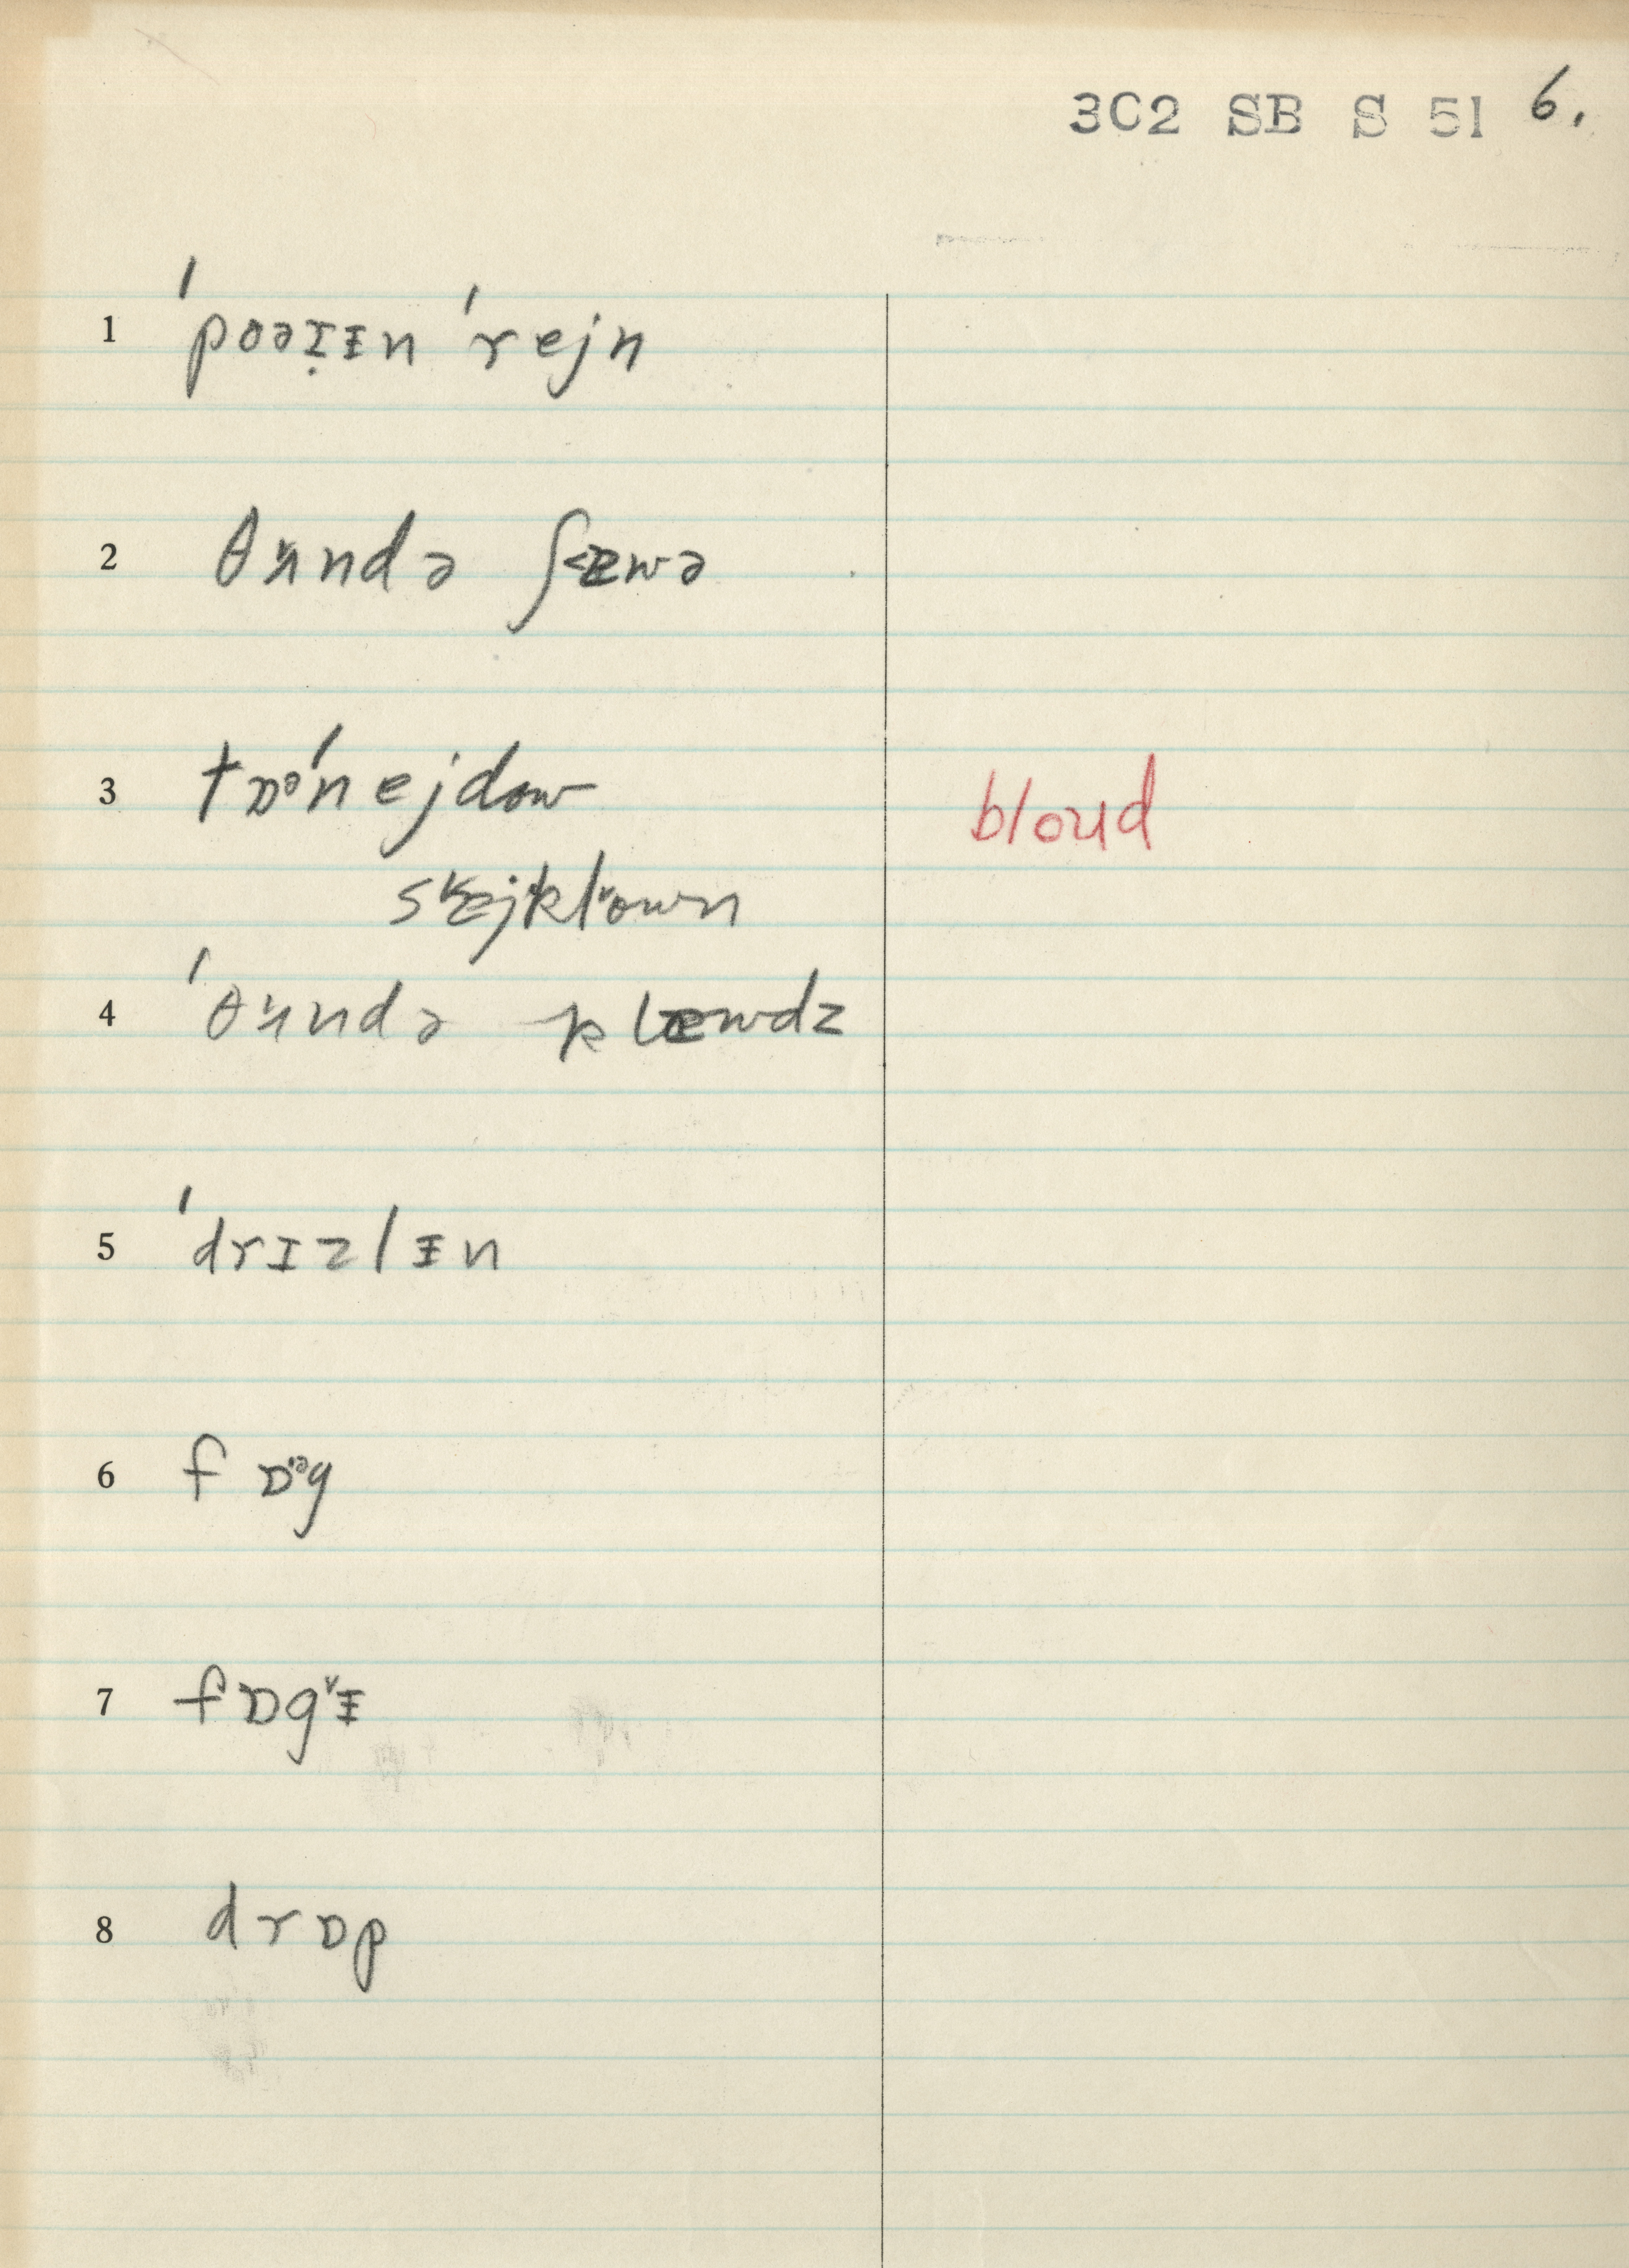 3C2 SB S 51 6.
1 ˈpoəɪ̣ᵻn ˈrejn
2 θɜ̆ndə ʃæwə
3 tɒᵊˈnejdow bloud
sæjklown
4 ˈθɜ̆ndə klæwdz
5 ˈdrɪzlᵻn
6 fɒᵊg
7 fɒgᵻ
8 drɒp